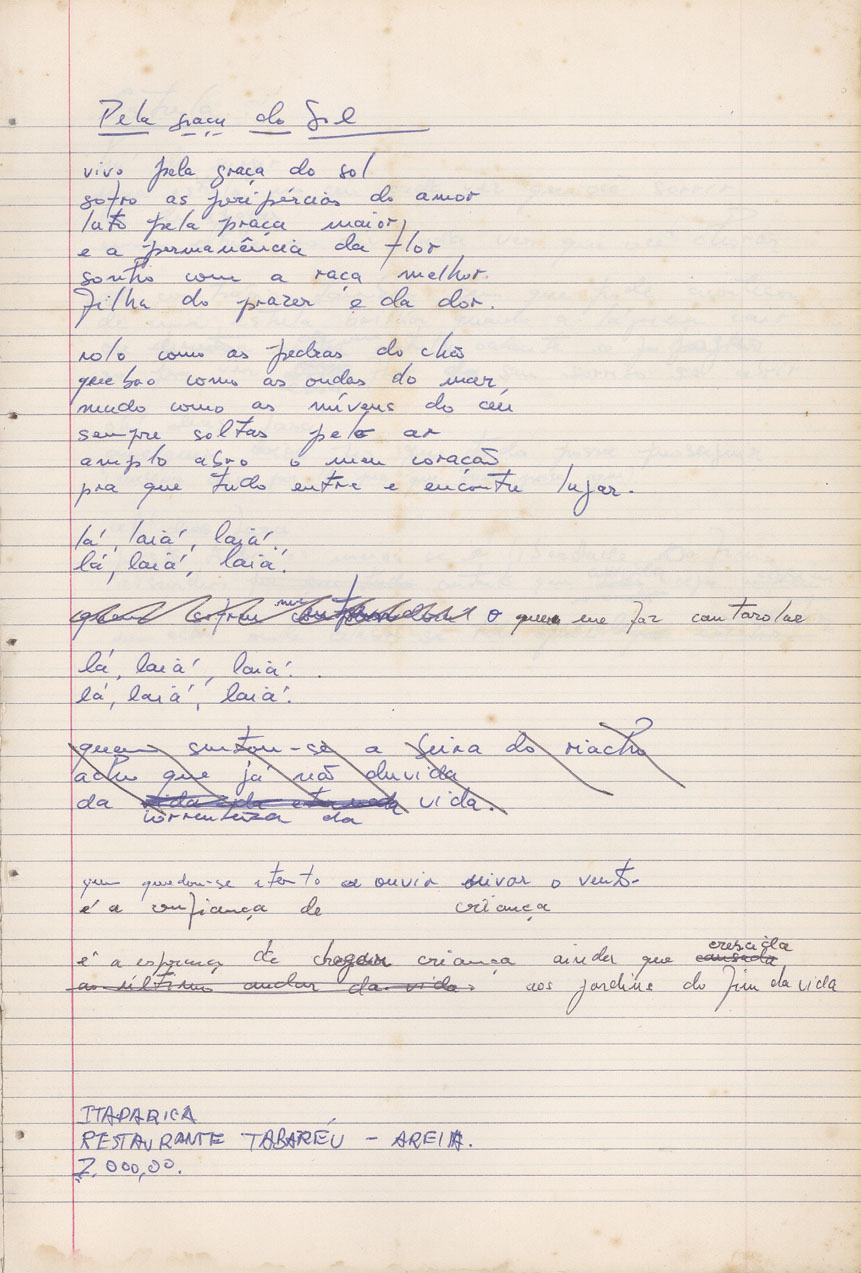 Pela graça do Sol
vivo pela graça do sol
sofro as peripércias do amor
luto pela praça maior,
e a permanência da flor
sonho com a raça melhor.
Filha do prazer e da dor.
rolo como as pedras do chão
quebro como as ondas do mar,
mudo como as núvens do céu
sempre soltas pelo ar
amplo abro o meu coração
pra que tudo entre e encontre lugar.
lá, laiá, laiá.
lá, laiá, laiá.
o que me faz cantarolar
lá, laiá, laiá.
lá, laiá, laiá.
quem sentou-se a beira do riacho
acho que já não duvida
da vida.
correnteza da
quem quedou-se atento a ouvir uivar o vento
é a confiança de criança
crescida
é a esperança de chegar criança ainda que cansada
ao último andar da vida. aos jardins do fim da vida
ITAPARICA
RESTAURANTE TABARÉU - AREIA.
7.000,00.